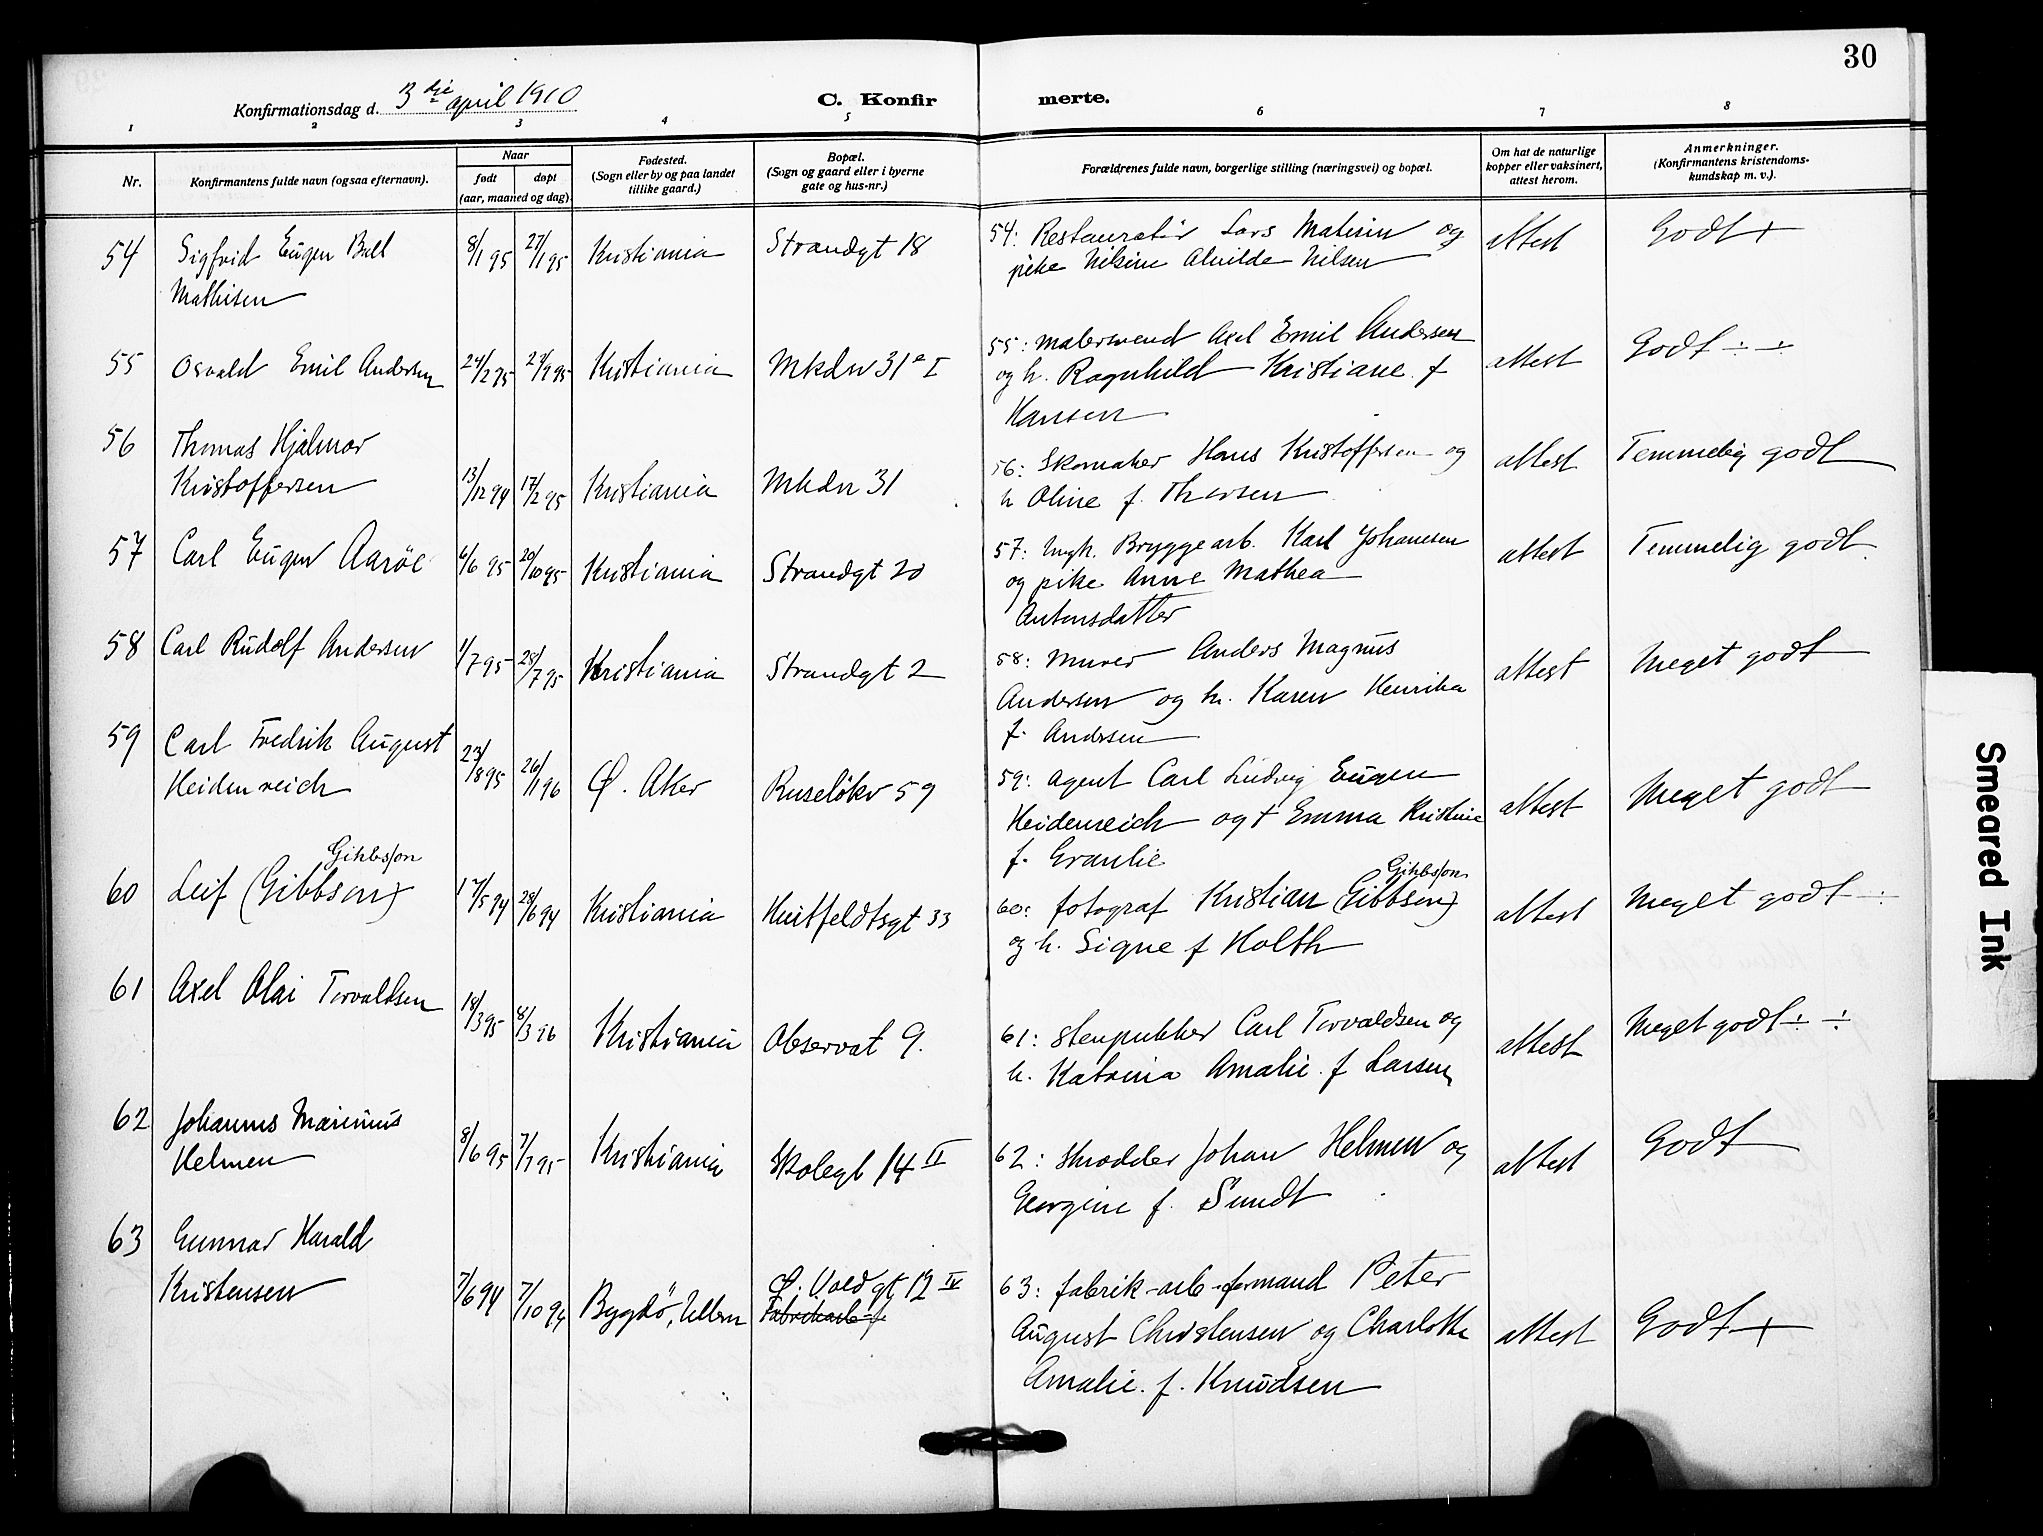 30
Konfirmationsdag d. 3die april 1910
C. Konfir merte.
1 2 3 4 5 6 7 8
Nr.
Konfirmantens fulde navn (ogsaa efternavn).
Naar
født
døpt
(aar, maaned og dag).
Fødested.
(Sogn eller by og paa landet
tillike gaard.)
Bopæl.
(Sogn og gaard eller i byerne
gate og hus-nr.)
Forældrenes fulde navn, borgerlige stilling (næringsvei) og bopæl.
Om hat de naturlige
kopper eller vaksinert,
attest herom.
Anmerkninger.
(Konfirmantens kristendoms-
kundskap m. v.).
54 Sigfrid Eugen Bull 8/1 95 27/1 95 Kristiania Strandgt 18
Mathisen
54: Restauratør Lars Mathisen og
pike Nilsine Alvilde Nilsen
attest Godt +
55 Osvald Emil Andersen 24/2 95 Kristiania Mkdv 31 a I
55: malersvend Axel Emil Andersen
og h. Ragnhild Kristiane f
Hansen
attest Godt ÷ ÷
56 Thomas Hjalmar
Kristoffersen 13/12 94 17/2 95 Kristiania Mkdv 31
56: Skomaker Hans Kristoffersen og
h Oline f. Thorsen
attest Temmelig godt
57 Carl Eugen Aaröe 6/6 95 20/10 95 Kristiania Strandgt 20
57: Ungk. Bryggearb. Karl Johansen
og pike Anne Mathea
Antonsdatter
attest Temmelig godt
58 Carl Rudolf Andersen 1/7 95 28/7 95 Kristiania Strandgt 2
58: murer Anders Magnus
Andersen og h. Karen Henrika
f. Andersen
attest Meget godt
59 Carl Fredrik August
Heidenreich 23/8 95 26/1 96 Ø. Aker Ruseløkv 59
59: agent Carl Ludvig Eugen
Heidenreich og † Emma Kristine
f. Granlie
attest Meget godt
Gihbsson
60 Leif (Gibbsen) 17/5 94 28/6 94 Kristiania Huitfeldtsgt 33
Gihbsson
60: fotograf Kristian (Gibbsen)
og h. Signe f Holth
attest Meget godt ÷
61 Axel Olai Torvaldsen 18/3 95 8/3 96 Kristiania Observat 9.
61: Stenpukker Carl Torvaldsen og
h. Katrina Amalie f Larsen
attest Meget godt ÷ ÷
62 Johannes Marinius
Helmen 8/6 95 7/7 95 Kristiania Skolegt 14 II
62: Skrædder Johan Helmen og
Georgine f. Sundt
attest Godt
63 Gunnar Harald
Kristensen 7/6 94 7/10 94 Bygdö, Ullern Ø. Voldgt 12 IV
Fabrikarb f
63: fabrik-arb-formand Peter
August Christensen og Charlotte
Amalie f. Knudsen
attest Godt +
Smeared Ink